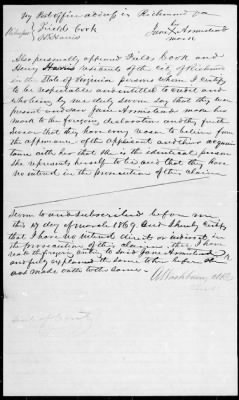 My Post office address is Richmond Va
Fields Cook
her
Jane X Armistead
mark
Also personally appeared Fields Cook and
Henry Harris residents of the City of Richmond
in the State of Virginia persons whom I certify
to be respectable and entitled to credit and
who being by me duly sworn say that they were
present and saw Jane Armistead make her
mark to the foregoing declaration and they further
swear that they have every reason to believe from
the appearance of the applicant and their acquain
tance with her that she is the identical person
she represents herself to be and that they have
no interest in the prosecution of this claim
Sworn to and subscribed before me
this 17 day of March 1869. And I hereby certify
that I have no interest direct or indirect in
the prosecution of this claim, that I have
read the foregoing to said Jane Armistead
and fully explained the same to her before she
was made oath to the same